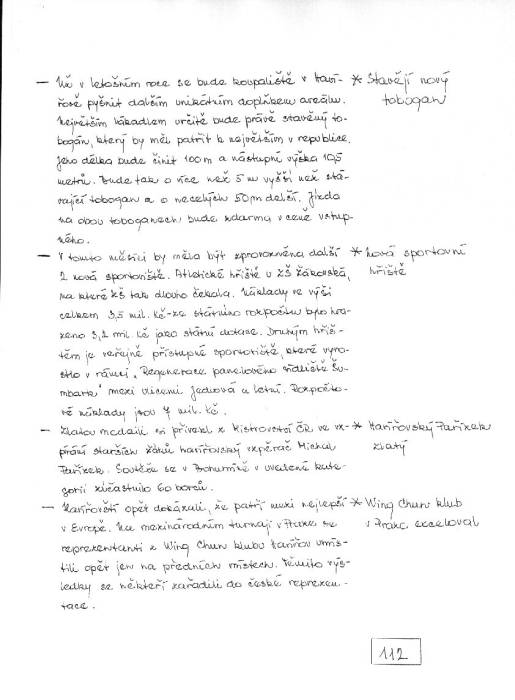 — Už v letošním roce se bude koupaliště v Haví- * Stavějí nový
řově pyšnit dalším unikátním doplňkem areálu. tobogan
Největším lákadlem určitě bude právě stavěný to-
bogán, který by měl patřit k největším v republice.
Jeho délka bude činit 100 m a nástupní výška 10,5
metrů. Bude tak o více než 5 m vyšší než stá-
vající tobogan a o necelých 50 m delší. Jízda
na obou toboganech bude zdarma v ceně vstup-
ného.
— V tomto měsíci by měla být zprovozněna další * Nová sportovní
2 nová sportoviště. Atletické hřiště u ZŠ Žákovská, hřiště
na které ZŠ tak dlouho čekala. Náklady ve výši
celkem 3,5 mil. Kč - ze státního rozpočtu bylo hra-
zeno 3,2 mil. Kč jako státní dotace. Druhým hřiš-
těm je veřejně přístupné sportoviště, které vyro-
stlo v rámci „Regenerace panelového sídliště Šum-
barku" mezi ulicemi Jedlová a Letní. Rozpočto-
vé náklady jsou 7 mil. Kč.
— Zlatou medaili si přivezl z Mistrovství ČR ve vz- * Havířovský Pařízek
pírání starších žáků havířovský vzpěrač Michal zlatý
Pařízek. Soutěže se v Bohumíně v uvedené kate-
gorii zúčastnilo 60 borců.
— Havířovští opět dokázali, že patří mezi nejlepší * Wing Chun klub
v Evropě. Na mezinárodním turnaji v Praze se v Praze exceloval
reprezentanti z Wing Chun klubu Havířov umís-
tili opět jen na předních místech. Těmito výs-
ledky se někteří zařadili do české reprezen-
tace.
112